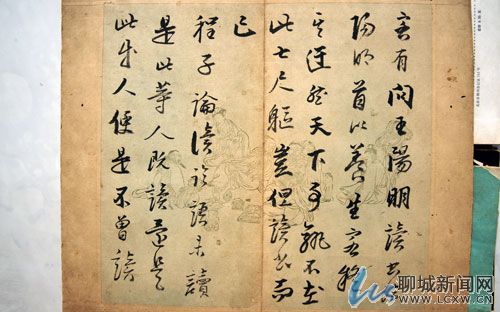 客有問王陽明讀書
陽明首以養生客
其迂然天下事孰不在
此七尺軀豈但讀书而
已
程子論讀論語未讀
是此等人既讀還是
此等人便是不曾讀
聊城新闻网
WWW.LCXW.CN